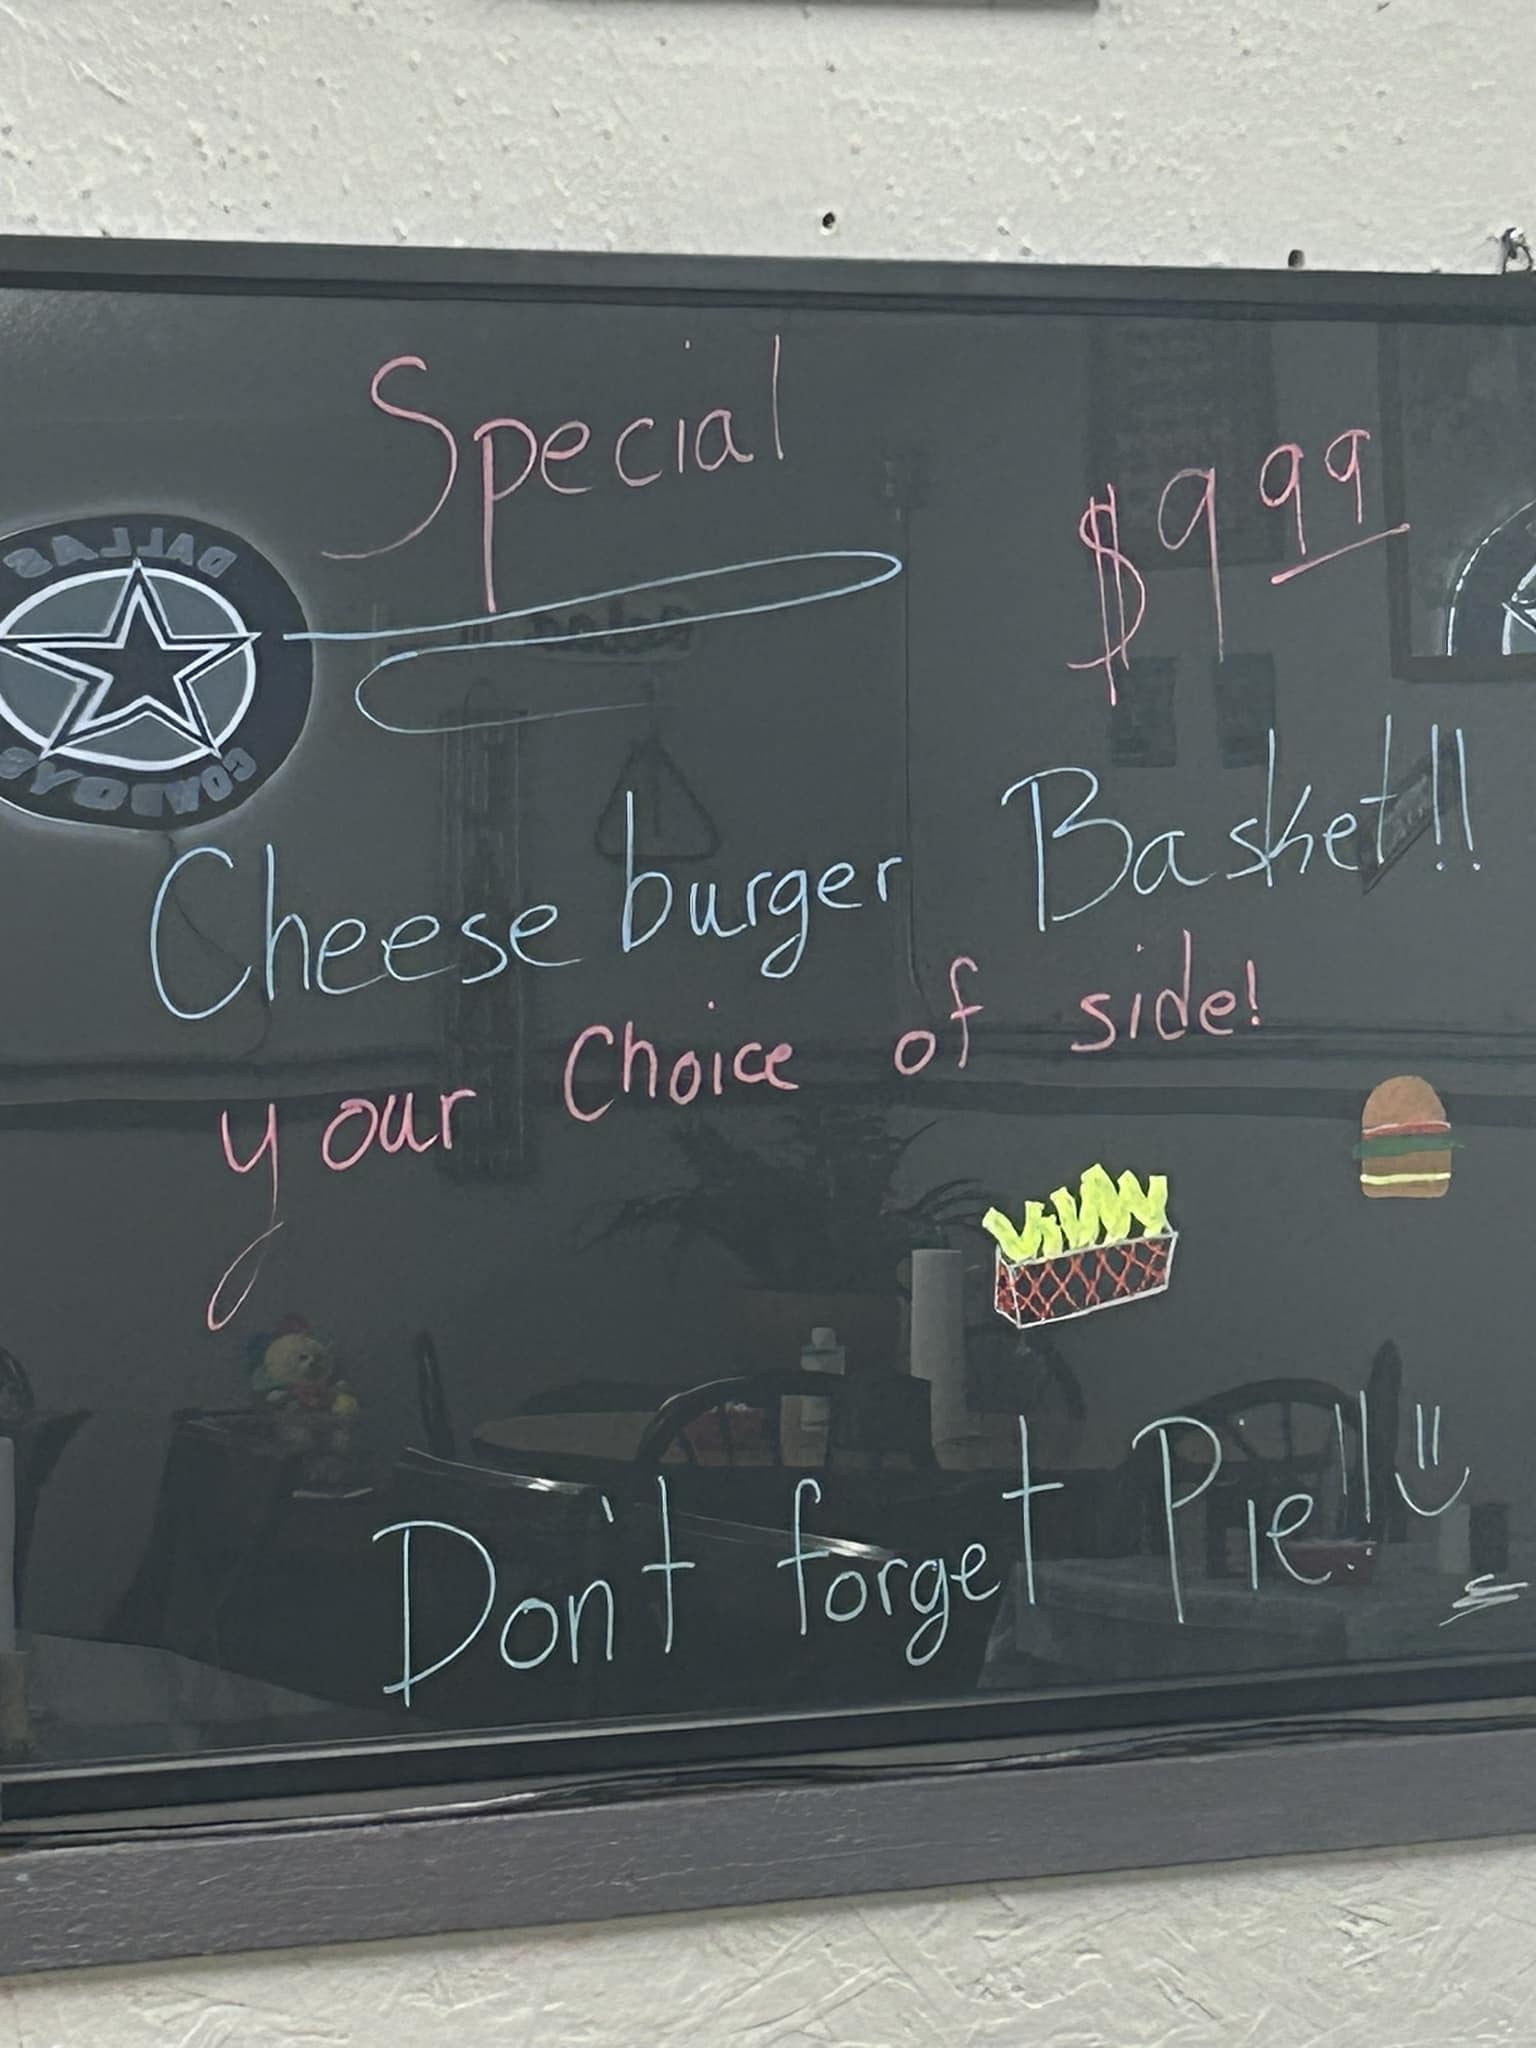 Special
$9 99
Cheese burger Basket!!
your Choice of side!
Don't forget Pie!!
DALLAS
COWBOYS